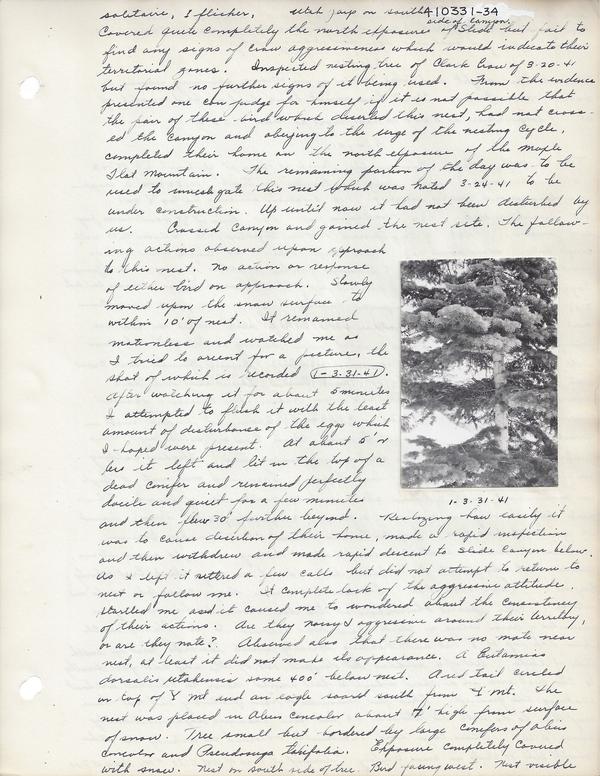 solitaire, 1 flicker, Utah jays on south 410331-34
side of Canyon.
Covered quite completely the north exposure of Slide but fail to
find any signs of Crow aggressiveness which would indicate their
territorial zones. Inspected nesting tree of Clark Crow of 3-20-41
but found no further signs of it being used. From the evidence
presented one can judge for himself if it is not possible that
the pair of these bird which deserted this nest, had not cross-
ed the Canyon and obeying to the urge of the nesting Cycle,
completed their home on the north exposure of the Maple
Flat Mountain. The remaining portion of the day was to be
used to investigate this nest which was noted 3-24-41 to be
under construction. Up until now it had not been disturbed by
us. Crossed Canyon and gained the nest site. The follow-
ing actions observed upon approach
to this nest. No action or response
of either bird on approach. Slowly
moved upon the snow surface to
within 10' of nest. It remained
motionless and watched me as
I tried to orient for a picture, the
shot of which is recorded (1-3-31-41).
After watching it for about 5 minutes
I attempted to flush it with the least
amount of disturbance of the eggs which
I hoped were present. At about 5' or
less it left and lit in the top of a
dead conifer and remained perfectly
docile and quiet for a few minutes
1-3-31-41
and then flew 30' further beyond. Realizing how easily it
was to cause desertion of their home, made a rapid inspection
and then withdrew and made rapid descent to Slide Canyon below.
As I left it uttered a few calls but did not attempt to return to
nest or follow me. It complete lack of the aggressive attitude
startled me and it caused me to wondered about the consistency
of their actions. Are they noisy & aggressive around their territory,
or are they mute? Observed also that there was no mate near
nest, at least it did not make its appearance. A Eutamias
dorsalis utahensis some 400' below nest. A red tail circled
on top of Y Mt and an eagle soared south from Y Mt. The
nest was placed in Abies concolor about 7' high from surface
of snow. Tree small but bordered by large conifers of Abies
concolor and Pseudosuga taxifolia. Exposure completely covered
with snow. Nest on south side of tree. Bird facing west. Nest visible